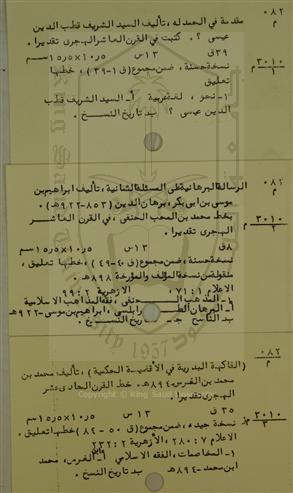 ٠٨٢
م
مقدمة في الحمدله ، تأليف السيد الشريف قطب الدين
عيسى ؟ . كتبت في القرن العاشر الهجرى تقديرا .
٣٩ ق ١٣ س ١٥٫٥×١٠٫٥ سم
٣٠١٠ م
١
نسخة حسنة ، ضمن مجموع (ق ١-٣٩) ، خطها
تعليق
١- نحو ، لغة عربية أ- السيد الشريف قطب
الدين عيسى ؟ ب- تاريخ النسخ .
٠٨٢
م
الرسالة البرهانية على المسئلة الثمانية ، تأليف ابراهيم بن
موسى بن ابى بكر ، برهان الدين (٨٥٣-٩٢٢هـ) .
بخط محمد بن المحب الحنفى ، في القرن العاشر
الهجرى تقديرا .
٨ق ١٣ س ١٥٫٥×١٠٫٥ سم
٣٠١٠ م
٢
نسخة حسنة ، ضمن مجموع (ق ٤٠-٤٩) ، خطها تعليق ،
منقولة من نسخة المؤلف والمؤرخة ٨٩٨ هـ .
الاعلام ١ : ٧١ ، الازهرية ٢ : ٩٩
١- المذهب الحنفى ، فقه المذاهب الاسلامية
أ- البرهان الطرابلسى ، ابراهيم بن موسى -٩٢٢هـ
ب- الناسخ ج- تاريخ النسخ .
1957
© King Saud
٠٨٢
م
(الفاكهة البدرية في الأقضية الحكمية) ، تأليف محمد بن
محمد بن الغرس ٨٩٤هـ . خط القرن الحادى عشر
الهجرى تقديرا .
٣٥ ق ١٣ س ١٥٫٥×١٠٫٥ سم
٣٠١٠ م
٣
نسخة جيده ، ضمن مجموع (ق ٥٠ - ٨٤) خطها تعليق .
الاعلام ٧ : ٢٨٠ ، الأزهرية ٢ : ٢٣٢
١- المخاصمات ، الفقه الاسلامي أ- ابن الغرس ، محمد
ابن محمد -٨٩٤هـ ب- تاريخ النسخ .